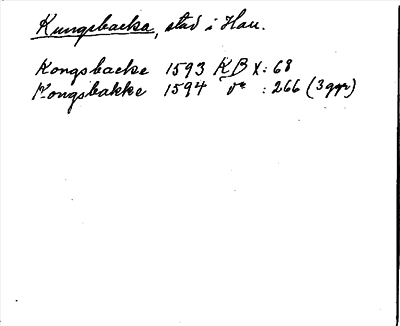 Kungsbacka, stad i Hall.
Kongsbacke 1593 KB X: 68
Kongsbakke 1594 d:o : 266 (3 ggr)